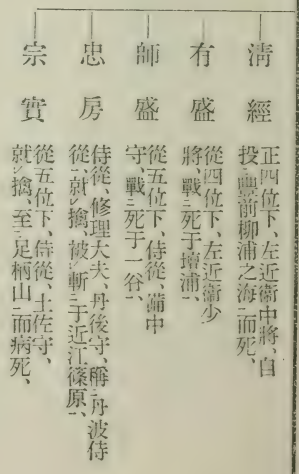 淸經
正四位下、左近衛中將、自
投豐前柳浦之海而死、
有盛
從四位下、左近衛少
將、戰死于壇浦、
師盛
從五位下、侍從、備中
守、戰死于一谷、
忠房
侍從、修理大夫、丹後守、稱丹波侍
從、就擒、被斬于近江篠原、
宗實
從五位下、侍從、土佐守、
就擒、至足柄山而病死、